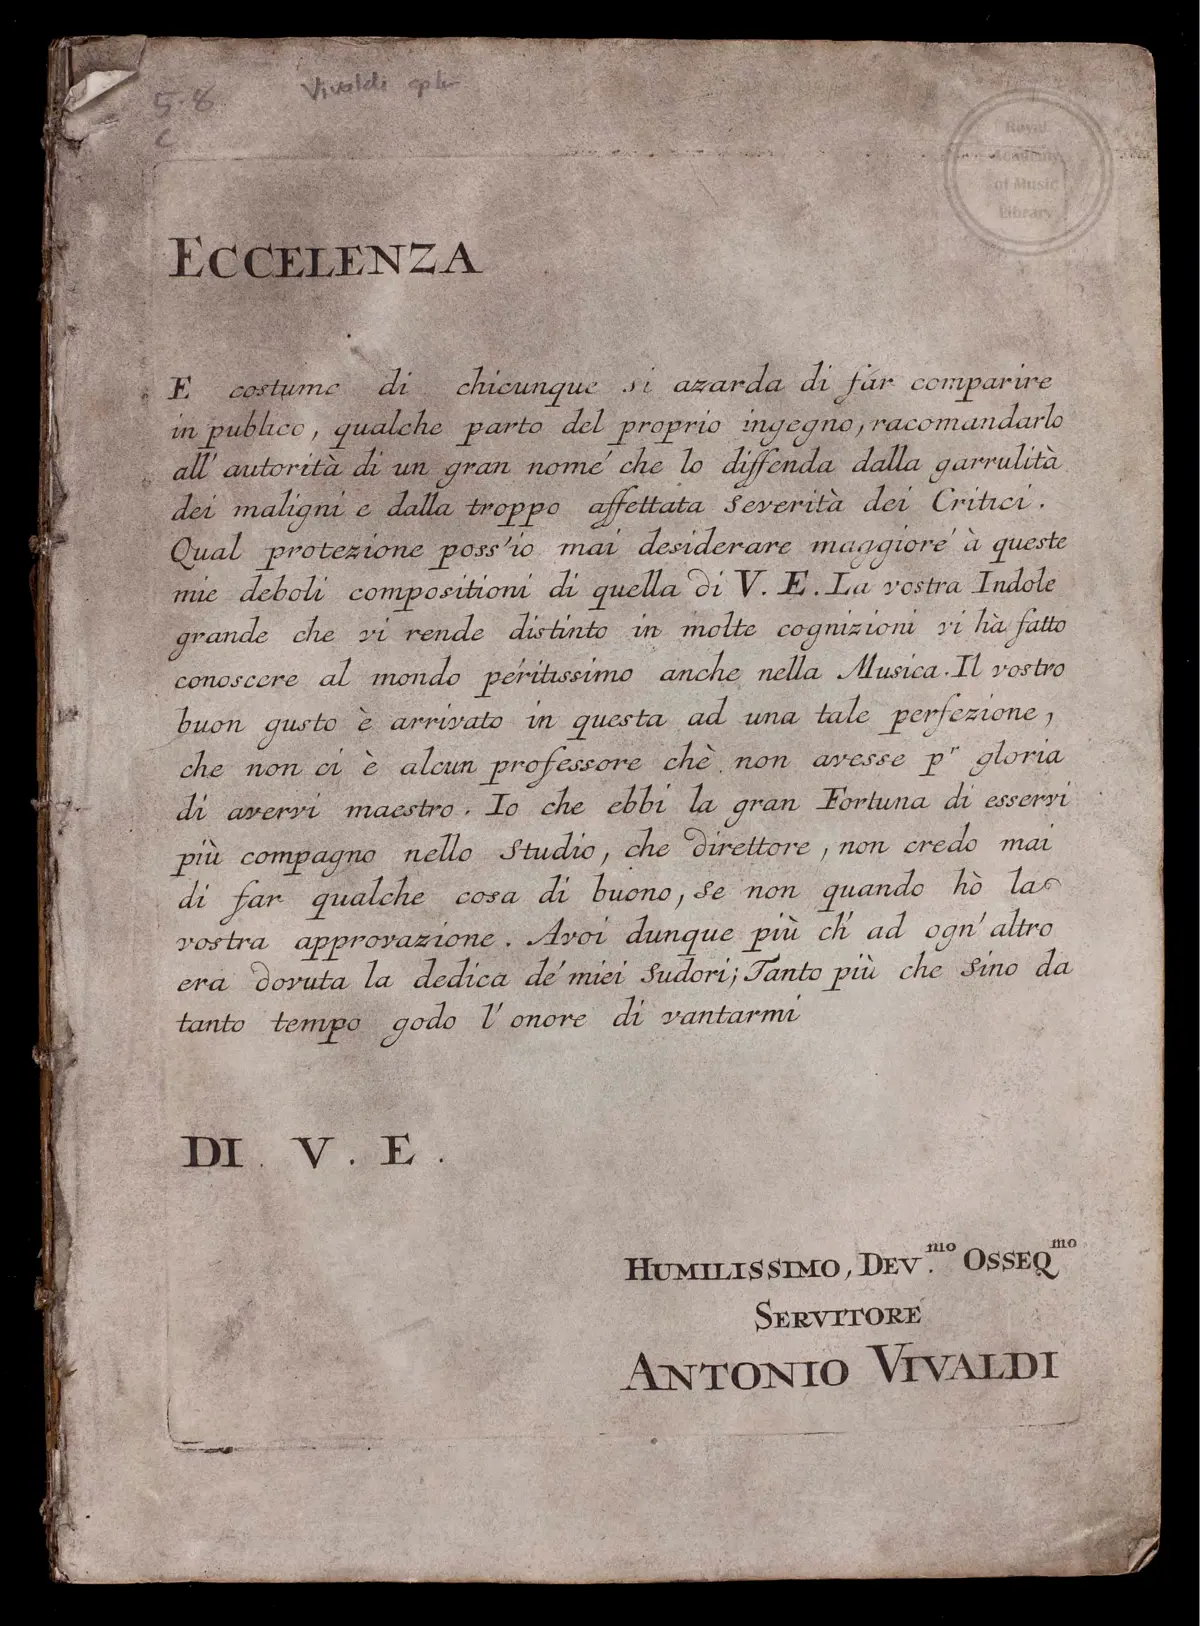 5-8
Vivaldi op4
Royal
Academy
of Music
Library
ECCELENZA
E costume di chicunque si azarda di far comparire
in publico, qualche parto del proprio ingegno, racomandarlo
all' autorità di un gran nome' che lo diffenda dalla garrulità
dei maligni e dalla troppo affettata Severità dei Critici.
Qual protezione poss'io mai desiderare maggiore' à queste
mie deboli compositioni di quella di V. E. La vostra Indole
grande che vi rende distinto in molte cognizioni vi hà fatto
conoscere al mondo péritissimo anche nella Musica. Il vostro
buon gusto è arrivato in questa ad una tale perfezione,
che non ci è alcun professore chè non avesse pʳ gloria
di avervi maestro. Io che ebbi la gran Fortuna di esservi
più compagno nello Studio, che direttore, non credo mai
di far qualche cosa di buono, se non quando hò la
vostra approvazione. Avoi dunque più ch' ad ogn' altro
era dovuta la dedica dé miei Sudori; Tanto più che Sino da
tanto tempo godo l' onore di vantarmi
DI. V. E.
HUMILISSIMO, DEV.ᵐᵒ OSSEQᵐᵒ
SERVITORE
ANTONIO VIVALDI